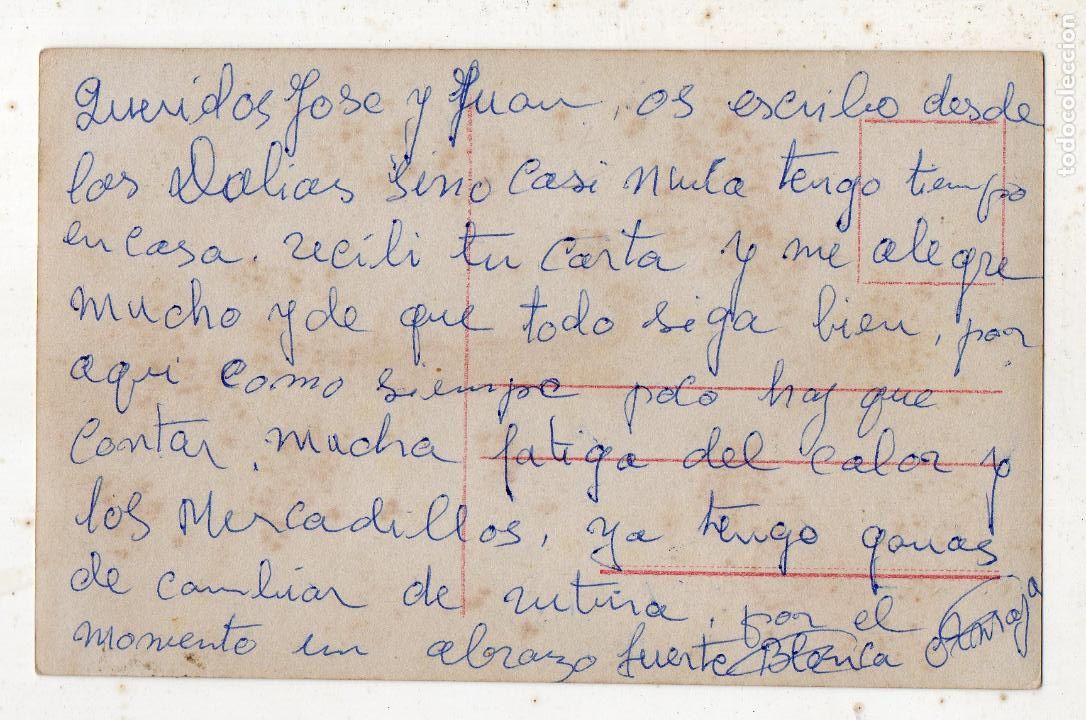 Queridos Jose y Juan, os escribo desde
las Dalias sino casi nunca tengo tiempo
en casa. recibi tu carta y me alegre
mucho y de que todo siga bien, por
aqui como siempre poco hay que
contar, mucha fatiga del calor y
los Mercadillos, ya tengo ganas
de cambiar de rutina, por el
momento un abrazo fuerte Blanca
todocoleccion